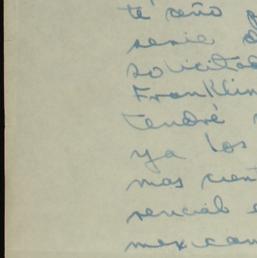 te año p
serie d
solicitad
Franklin
tendré
ya los
mas cient
sencial e
mexican